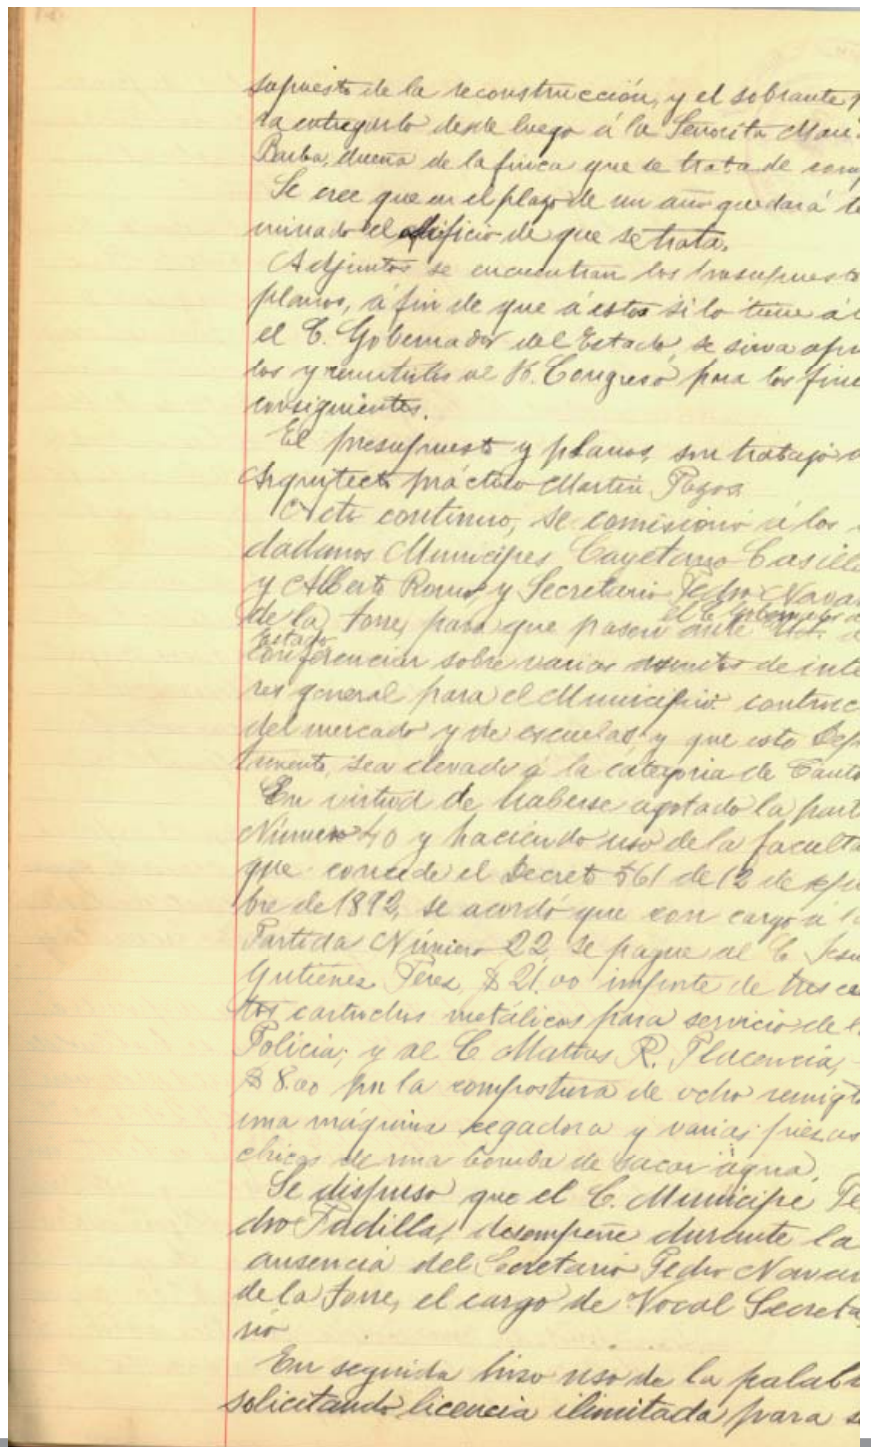 supuesto de la reconstrucción, y el sobrante p
ra entregarlo desde luego á la Señorita Mari
Barba, dueña de la finca que se trata de com
Se cree que en el plazo de un año quedará te
minado el edificio de que se trata.
Adjuntos se encuentran los presupuesto
planos, á fin de que á estos si lo tiene á
el C. Gobernador del Estado, se sirva apr
los y remitirlos al H. Congreso para los fine
consiguientes.
El presupuesto y planos, son trabajo
Arquitecto práctico Martin Pozos.
Acto continuo, se comisionó á los
dadanos Municipes Cayetano Casill
y Alberto Romo, y Secretario Pedro Navar
el C. Gobernador d
de la Torre, para que pasen ante
Estado
conferenciar sobre varios asuntos de inte
res general para el Municipio: contrucc
del mercado y de escuelas, y que este Dep
tamento, sea elevado á la categoria de Canto
En virtud de haberse agotado la part
Número 40 y haciendo uso de la faculta
que concede el Decreto 561 de 12 de
bre de 1892, se acordó que con cargo á l
Partida Número 22, se pague al C. Jesu
Gutiérres Peres, $21.00 importe de tres
tos cartuchos metálicos para servicio de l
Policia; y al C. Matias R. Placencia,
$8.00 por la compostura de ocho
una máquina segadora y varias piesas
chicas de una bomba de sacar agua.
Se dispuso que el C. Municipe Pe
dro Padilla, desempeñe durante la
ausencia del Secretario Pedro Navar
de la Torre, el cargo de Vocal Secreta
rio
En seguida hizo uso de la palab
solicitando licencia ilimitada para s